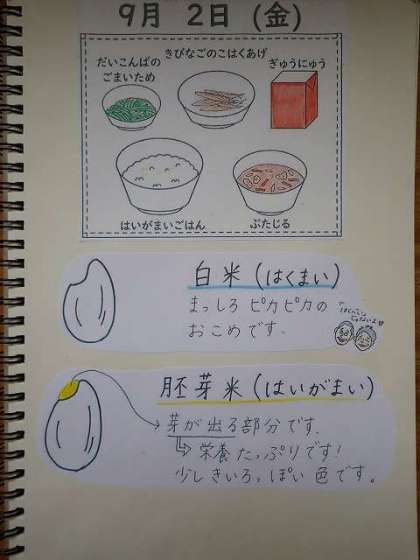 9月 2日 (金)
きびなごのこはくあげ
だいこんばの
ごまいため
ぎゅうにゅう
はいがまいごはん
ぶたじる
白米(はくまい)
まっしろ ピカピカの
おこめです。
胚芽米(はいがまい)
芽が出る部分です。
栄養たっぷりです!
少しきいろっぽい色です。